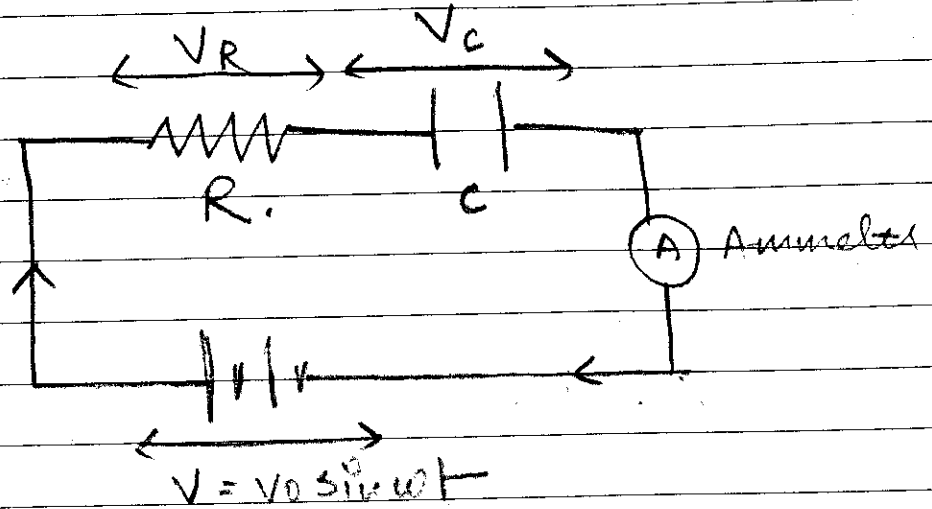 VR Vc
R. C
A Ammeter
V = V0 sin ωt